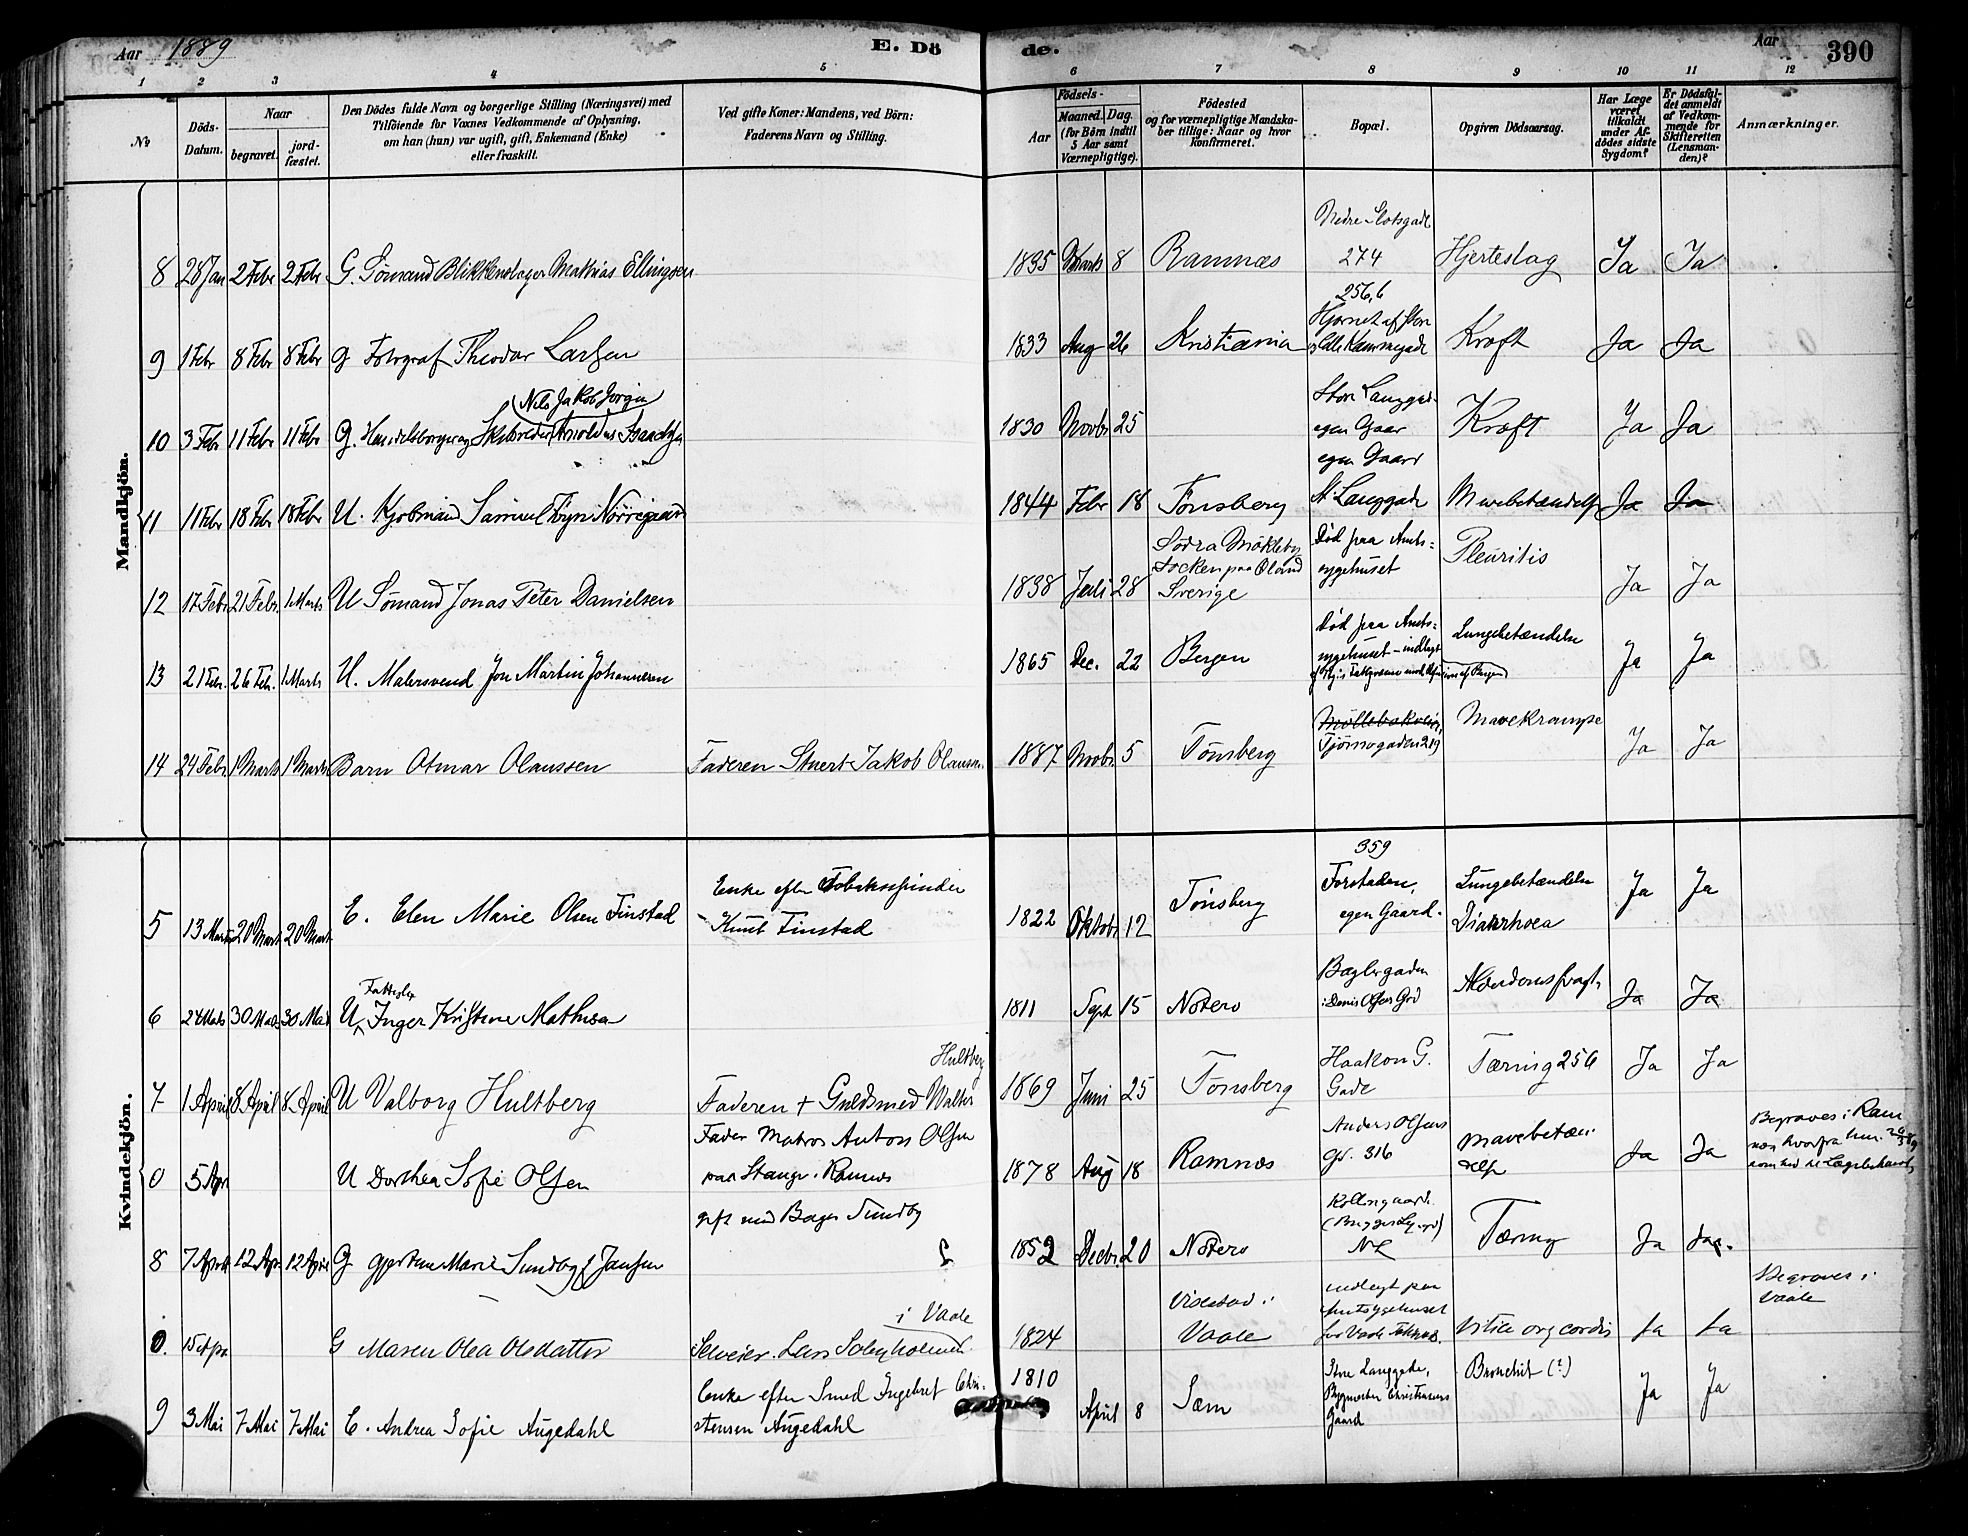 Aar 1889 E. Dö de. Aar 390
1 2 3 4 5 6 7 8 9 10 11 12
No
Döds-Datum.
Naar
begravet.
jord-fæstet.
Den Dödes fulde Navn og borgerlige Stilling (Næringsvei) med
Tilföiende for Voxnes Vedkommende af Oplysning,
om han (hun) var ugift, gift, Enkemand (Enke)
eller fraskilt.
Ved gifte Koner: Mandens, ved Börn:
Faderens Navn og Stilling.
Födsels-
Aar
Maaned. Dag.
(for Börn indtil
5 Aar samt
Værnepligtige).
Födested
og for værnepligtige Mandska-
ber tillige: Naar og hvor
konfirmeret.
Bopæl.
Opgiven Dödsaarsag.
Har Læge
været
tilkaldt
under Af-
dödes sidste
Sygdom?
Er Dödsfal-
det anmeldt
af Vedkom-
mende for
Skifteretten
(Lensman-
den)?
Anmærkninger.
Mandkjön.
Nedre Slotsgade
8 28 Jan 2 Febr 2 Febr G. Sömand Blikkenslager Mathias Ellingsen 1835 Marts 8 Ramnæs 274 Hjerteslag Ja Ja
256,6
Hjörnet af Stor
9 1 Febr 8 Febr 8 Febr G Fotograf Theodor Larsen 1833 Aug 26 Kristiania Kræft Ja Ja
Nils Jakob Jörgen
Store Langgade
10 3 Febr 11 Febr 11 Febr G. Handelsborger og Skibsreder Arnoldus 1830 Novbr 25 egen Gaar Kræft Ja Ja
egen Gaard
11 11 Febr 18 Febr 18 Febr U. Kjöbmand Samuel Föyn Nörregaard 1844 Febr 18 Tönsberg St. Langgade Mavebetændelse Ja Ja
Södra Möckleby
Socken paa Öland
Sverige
Död paa Amts=
sygehuset
12 17 Febr 21 Febr 1 Marts U Sömand Jonas Peter Danielsen 1838 Juli 28 Pleuritis Ja Ja
Död paa Amts=
sygehuset - indlagt
13 21 Febr. 26 Febr. 1 Marts U. Malersvend Jon Martin Johannesen 1865 Dec. 22 Bergen Lungebetændelse Ja Ja
Möllebakveien
Tjömogaden 219
14 24 Febr 1 Marts 1 Marts Barn Otmar Olaussen Faderen Stuert Jakob Olaussen 1887 Novbr. 5 Tönsberg Mavekrampe Ja Ja
Kvindekjön.
359
Enke efter Tobaksspinder
Knut Finstad
5 13 Marts 20 Marts 20 Marts E. Elen Marie Olsen Finstad 1822 Oktobr 12 Tönsberg Forstaden, egen Gaard. Lungebetændelse Diarrhoea Ja Ja
Fattiglem
6 24 Marts 30 Mar 30 Mar U Inger Kristine Mathisen 1811 Sept 15 Nöterö Baglergaden Alderdomssvagh. Ja Ja
Hultberg
7 1 April 8 April 8 April U Valborg Hultberg Faderen + Guldsmed Walter 1869 Juni 25 Tönsberg Haakon G. Gade Tæring 256 Ja Ja
Fader Matros Anton Olsen
paa Stange i Ramnæs
0 5 Apr U Dorthea Sofie Olsen 1878 Aug 18 Ramnæs Anders Olsens Gd. 316 Mavebetændelse Ja Ja Begraves i Ram
næs hvorfra hun
kom hid til Lægebehandl
gift med Bager Sundby
8 7 April 12 Apr 12 April G Gjertine Marie Sundby f Jansen 1852 Decbr. 20 Nöterö Tæring Ja Ja.
i Vaale
0. 15 Apr G Maren Olea Olsdatter Selveier Lars Solbyholmen 1824 Violstad i Vaale indlagt paa
Amtssygehuset
for Vaale Fattigv. Vitium org cordis Ja Ja Begraves i
Vaale
9 3 Mai 7 Mai 7 Mai E. Andrea Sofie Augedahl Enke efter Smed Ingebret Chri-
stensen Augedahl 1810 April 8 Sæm Store Langgade,
Bygmester Christiansens
Gaard Bronchit (?) Ja Ja